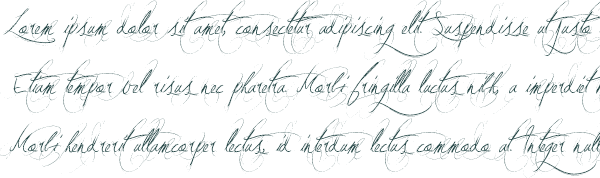 Lorem ipsum dolor sit amet, consectetur adipiscing elit. Suspendisse ut justo
Etiam tempor vel risus nec pharetra. Morbi fringilla luctus nibh, a imperdiet
Morbi hendrerit ullamcorper lectus, id interdum lectus commodo at. Integer